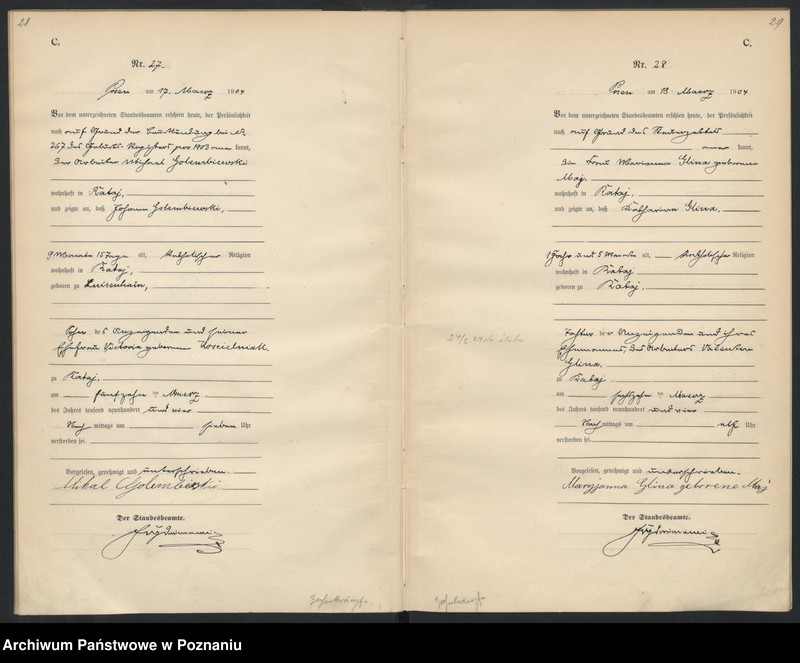 28
C.
Nr. 27.
Posen am 17. Maerz 1904
Vor dem unterzeichneten Standesbeamten erschien heute, der Persönlichkeit
nach auf Grund der Beurkundung bei Nr.
267 des Geburts-Registers pro 1903 kannt,
der Arbeiter Michael Golembiewski
wohnhaft in Kataj,
und zeigte an, daß Johann Golembiewski,
9 Monate 15 Tage alt, katholischer Religion
wohnhaft in Kataj,
geboren zu Luisenhain,
Sohn des Anzeigenden und seiner
Ehefrau Victoria geborenen Koscielniak.
zu Kataj,
am fünfzehn ten Maerz
des Jahres tausend neunhundert und vier
Nach mittags um sieben Uhr
verstorben sei.
Vorgelesen, genehmigt und unterschrieben.
Mikal Golembieski
Der Standesbeamte.
Zahnkrämpfe.
29
C.
Nr. 28
Posen am 18. Maerz 1904
Vor dem unterzeichneten Standesbeamten erschien heute, der Persönlichkeit
nach auf Grund des
kannt,
die Frau Marianna Glina geborene
Maj,
wohnhaft in Kataj,
und zeigte an, daß Katharina Glina,
1 Jahr und 5 Monate alt, katholischer Religion
wohnhaft in Kataj
geboren zu Kataj,
Tochter der Anzeigenden und ihres
Ehemannes, des Arbeiters Valentin
Glina.
zu Kataj
am sechszehn ten Maerz
des Jahres tausend neunhundert und vier
Nach mittags um elf Uhr
verstorben sei.
Vorgelesen, genehmigt und unterschrieben.
Maryjanna Glina geborene Maj
Der Standesbeamte.
Archiwum Państwowe w Poznaniu